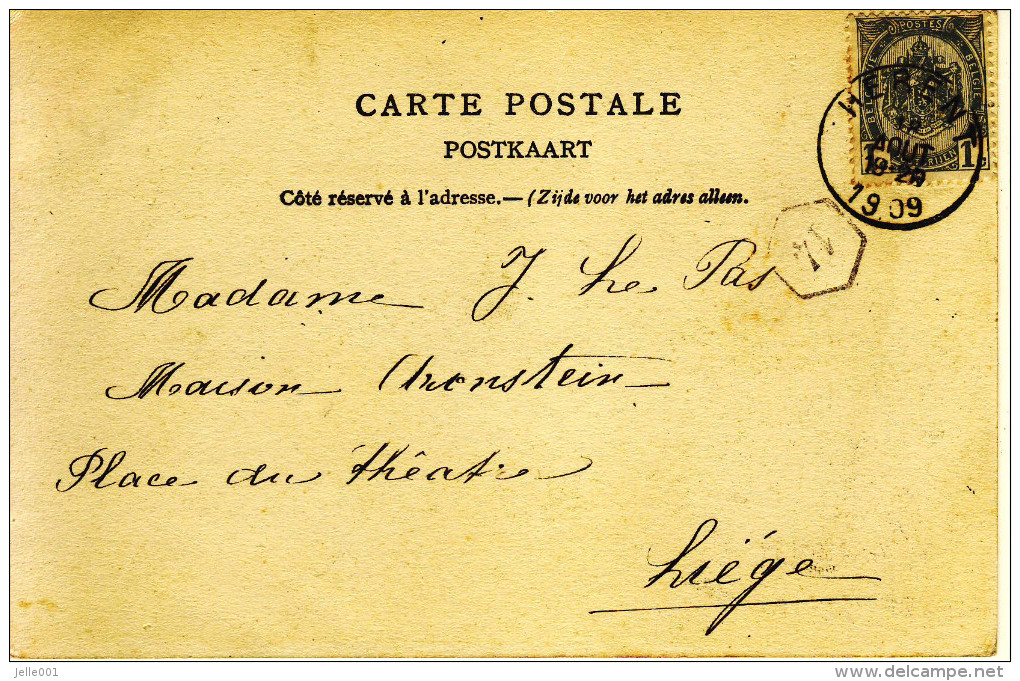 CARTE POSTALE
POSTKAART
Côté réservé à l'adresse.—(Zijde voor het adres alleen.
POSTES
BELGIE
BELGIQUE
1
1
HERENT
AOUT
18-20
1909
Madame J. Le Pas
Maison
Place du théatre
Liége
jelle001
delcampe.net